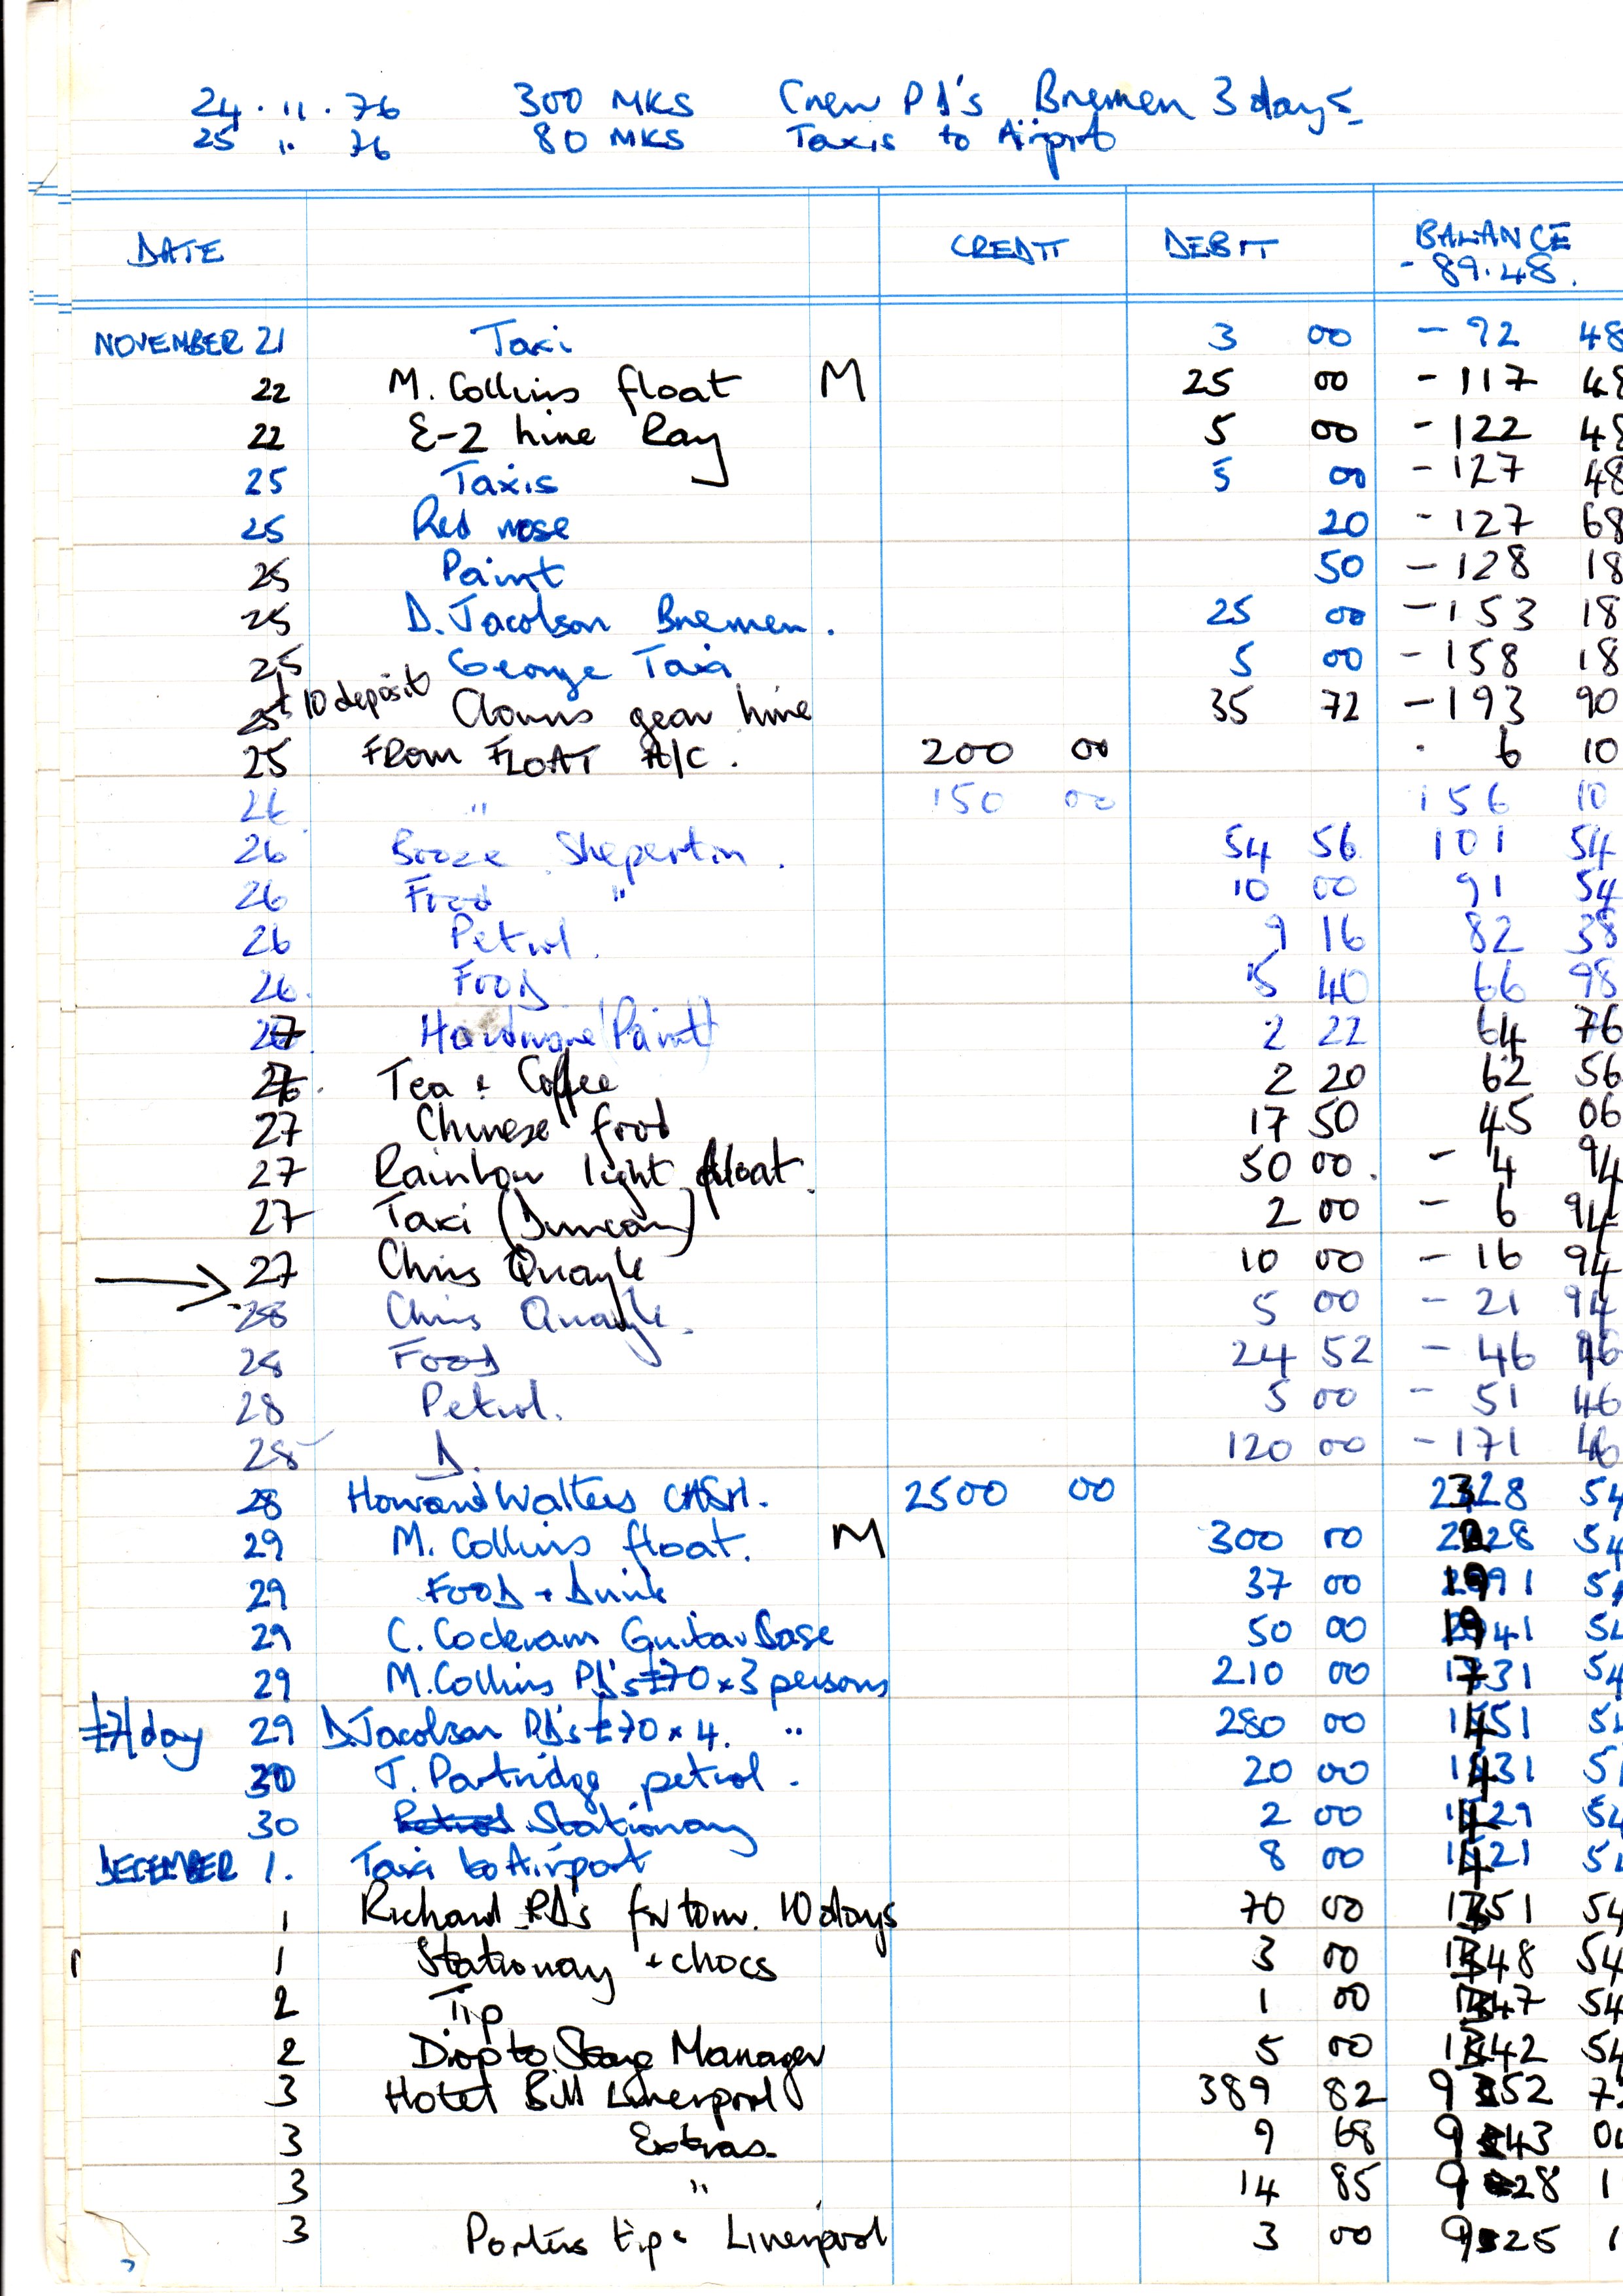 24.11.76 300 MKS Crew PD's Bremen 3 days
25 " 76 80 MKS Taxis to Airport
DATE CREDIT DEBIT BALANCE
- 89.48.
NOVEMBER 21 Taxi 3 00 - 92 48
22 M. Collins float M 25 00 - 117 48
22 E-2 hire Ray 5 00 - 122 48
25 Taxis 5 00 - 127 48
25 Red nose 20 - 127 68
25 Paint 50 - 128 18
25 D. Jacobson Bremen. 25 00 - 153 18
25 George Taxi 5 00 - 158 18
£10 deposit
25 Clowns gear hire 35 72 - 193 90
25 FROM FLOAT A/C. 200 00 6 10
26 " 150 00 156 10
26 Booze Sheperton. 54 56 101 54
26 Food " 10 00 91 54
26 Petrol. 9 16 82 38
26. Food 15 40 66 98
27 Hardware (Paint) 2 22 64 76
Tea + Coffee 2 20 62 56
27 Chinese food 17 50 45 06
27 Rainbow light float. 50 00. - 4 94
27 Taxi (Duncan) 2 00 - 6 94
27 Chris Quayle 10 00 - 16 94
28 Chris Quayle. 5 00 - 21 94
28 Food 24 52 - 46 46
28 Petrol. 5 00 - 51 46
28 D. 120 00 - 171 46
28 Howard Walters CASH. 2500 00 2328 54
29 M. Collins float. M 300 00 2028 54
29 Food + Drink 37 00 1991 54
29 C. Cockram Guitar Base 50 00 1941 54
29 M. Collins PD's £70 x 3 persons 210 00 1731 54
£7/day 29 D. Jacobson PD's £70 x 4. " 280 00 1451 54
30 T. Partridge petrol. 20 00 1431 54
30 Stationary 2 00 1429 54
DECEMBER 1. Taxi to Airport 8 00 1421 54
1 Richard PD's for tour. 10 days 70 00 1351 54
1 Stationary + chocs 3 00 1348 54
2 Tip 1 00 1347 54
2 Drop to Stage Manager 5 00 1342 54
3 Hotel Bill Liverpool 389 82 952 7
3 Extras 9 68 943 0
3 " 14 85 928 1
3 Porters tips Liverpool 3 00 925 1